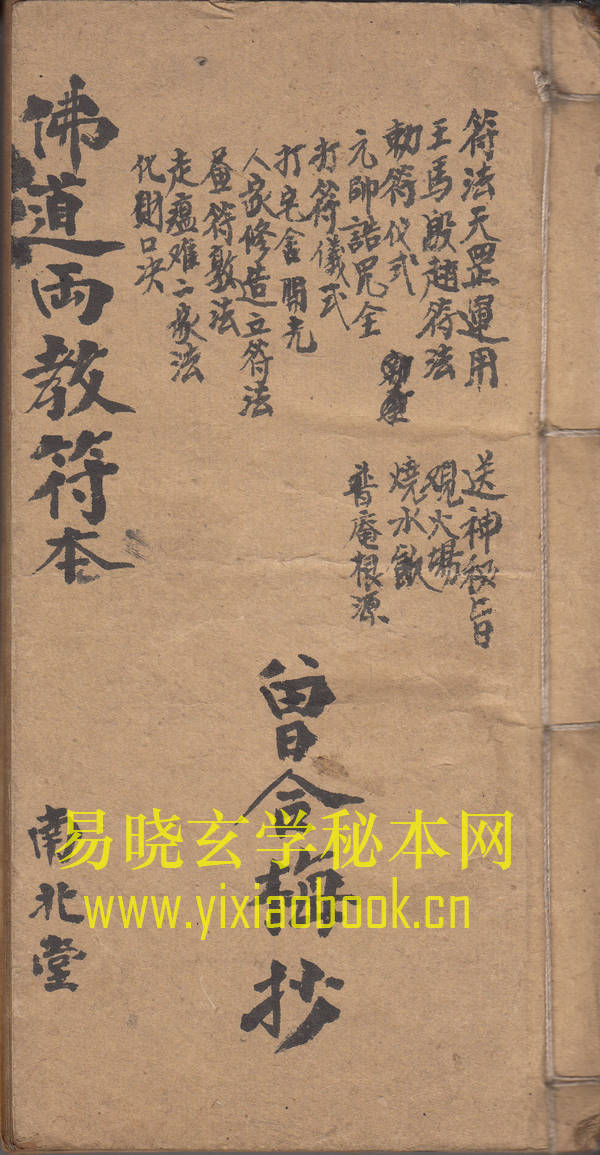 符法天罡運用
王馬殷趙符法
勅符仪式
元帥誥咒全
打符儀式
打宅舍開光
人家修造立符法
符敕法
走瘟难二家法
化財口决
送神秘旨
观火場
燒水飯
普庵根源
曾 抄
佛道両教符本
南北堂
易晓玄学秘本网
www.yixiaobook.cn